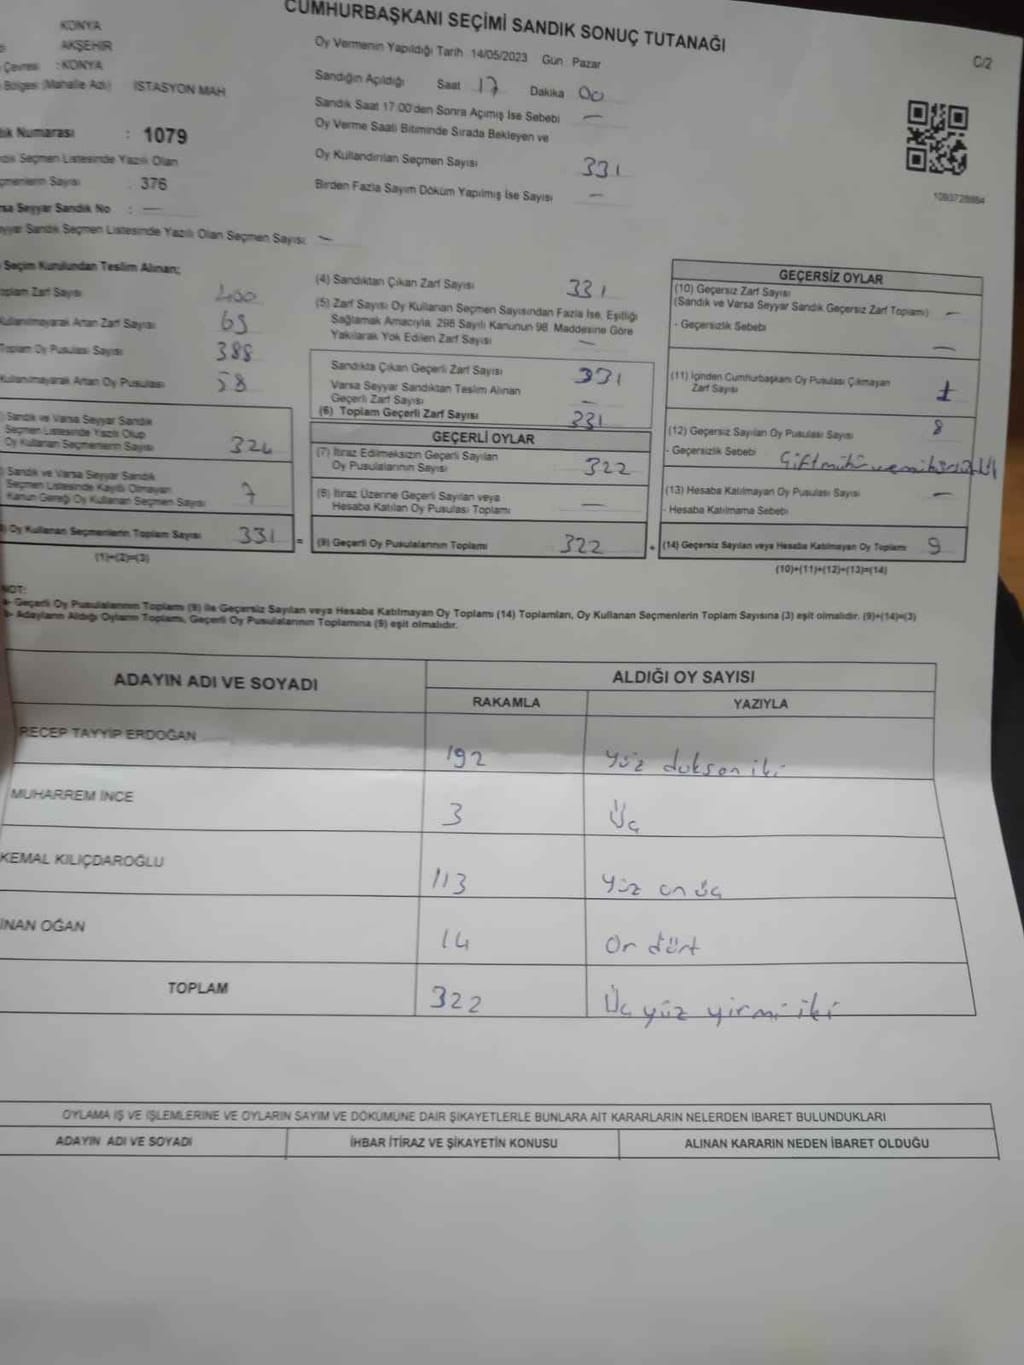 CUMHURBAŞKANI SEÇİMİ SANDIK SONUÇ TUTANAĞI
C/2
KONYA
AKŞEHİR
Çevresi : KONYA
Bölgesi (Mahalle Adı) İSTASYON MAH
Numarası : 1079
Seçmen Listesinde Yazılı Olan
Sayısı : 376
Varsa Seyyar Sandık No : —
Seyyar Sandık Seçmen Listesinde Yazılı Olan Seçmen Sayısı —
Oy Vermenin Yapıldığı Tarih 14/05/2023 Gün Pazar
Sandığın Açıldığı Saat 17 Dakika 00
Sandık Saat 17:00'den Sonra Açımış İse Sebebi —
Oy Verme Saati Bitiminde Sırada Bekleyen ve
Oy Kullandırılan Seçmen Sayısı 331
Birden Fazla Sayım Döküm Yapılmış İse Sayısı —
1093728884
Seçim Kurulundan Teslim Alınan;
Toplam Zarf Sayısı 400
Kullanılmayarak Artan Zarf Sayısı 69
Toplam Oy Pusulası Sayısı 388
Kullanılmayarak Artan Oy Pusulası 58
Sandık ve Varsa Seyyar Sandık
Seçmen Listesinde Yazılı Olup
Oy Kullanan Seçmenlerin Sayısı 324
Sandık ve Varsa Seyyar Sandık
Seçmen Listesinde Kayıtlı Olmayan
Kanun Gereği Oy Kullanan Seçmen Sayısı 7
Oy Kullanan Seçmenlerin Toplam Sayısı 331 =
(1)+(2)=(3)
(4) Sandıktan Çıkan Zarf Sayısı 331
(5) Zarf Sayısı Oy Kullanan Seçmen Sayısından Fazla İse, Eşitliği
Sağlamak Amacıyla, 298 Sayılı Kanunun 98. Maddesine Göre
Yakılarak Yok Edilen Zarf Sayısı —
Sandıkta Çıkan Geçerli Zarf Sayısı 331
Varsa Seyyar Sandıktan Teslim Alınan
Geçerli Zarf Sayısı —
(6) Toplam Geçerli Zarf Sayısı 331
GEÇERLİ OYLAR
(7) İtiraz Edilmeksizin Geçerli Sayılan
Oy Pusulalarının Sayısı 322
(8) İtiraz Üzerine Geçerli Sayılan veya
Hesaba Katılan Oy Pusulası Toplamı —
(9) Geçerli Oy Pusulalarının Toplamı 322 +
GEÇERSİZ OYLAR
(10) Geçersiz Zarf Sayısı
(Sandık ve Varsa Seyyar Sandık Geçersiz Zarf Toplamı) —
- Geçersizlik Sebebi —
(11) İçinden Cumhurbaşkanı Oy Pusulası Çıkmayan
Zarf Sayısı 1
(12) Geçersiz Sayılan Oy Pusulası Sayısı 8
- Geçersizlik Sebebi
(13) Hesaba Katılmayan Oy Pusulası Sayısı —
- Hesaba Katılmama Sebebi
(14) Geçersiz Sayılan veya Hesaba Katılmayan Oy Toplamı 9
(10)+(11)+(12)+(13)=(14)
NOT:
a- Geçerli Oy Pusulalarının Toplamı (9) ile Geçersiz Sayılan veya Hesaba Katılmayan Oy Toplamı (14) Toplamları, Oy Kullanan Seçmenlerin Toplam Sayısına (3) eşit olmalıdır. (9)+(14)=(3)
b- Adayların Aldığı Oyların Toplamı, Geçerli Oy Pusulalarının Toplamına (9) eşit olmalıdır.
ADAYIN ADI VE SOYADI ALDIĞI OY SAYISI
RAKAMLA YAZIYLA
RECEP TAYYİP ERDOĞAN 192 Yüz doksan iki
MUHARREM İNCE 3 Üç
KEMAL KILIÇDAROĞLU 113 Yüz on üç
İNAN OĞAN 14 On dört
TOPLAM 322 Üç yüz yirmi iki
OYLAMA İŞ VE İŞLEMLERİNE VE OYLARIN SAYIM VE DÖKÜMÜNE DAİR ŞİKAYETLERLE BUNLARA AİT KARARLARIN NELERDEN İBARET BULUNDUKLARI
ADAYIN ADI VE SOYADI İHBAR İTİRAZ VE ŞİKAYETİN KONUSU ALINAN KARARIN NEDEN İBARET OLDUĞU